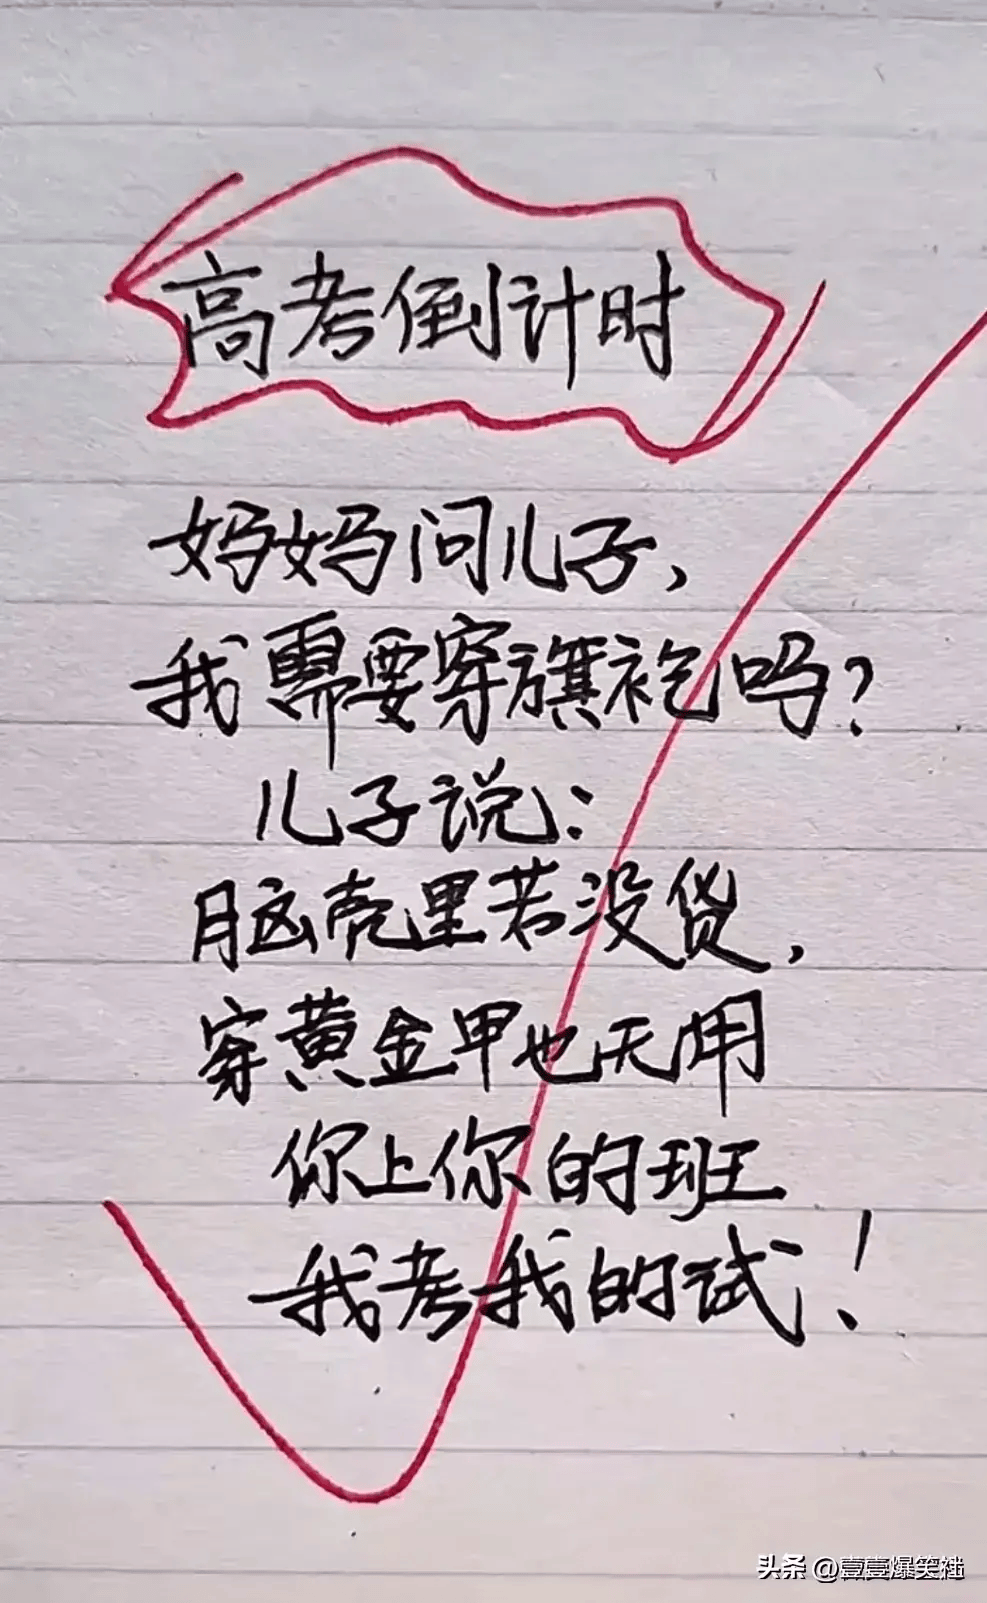 高考倒计时
妈妈问儿子,
我需要穿旗袍吗?
儿子说:
脑壳里若没货,
穿黄金甲也无用
你上你的班
我考我的试!
头条 @壹壹爆笑社